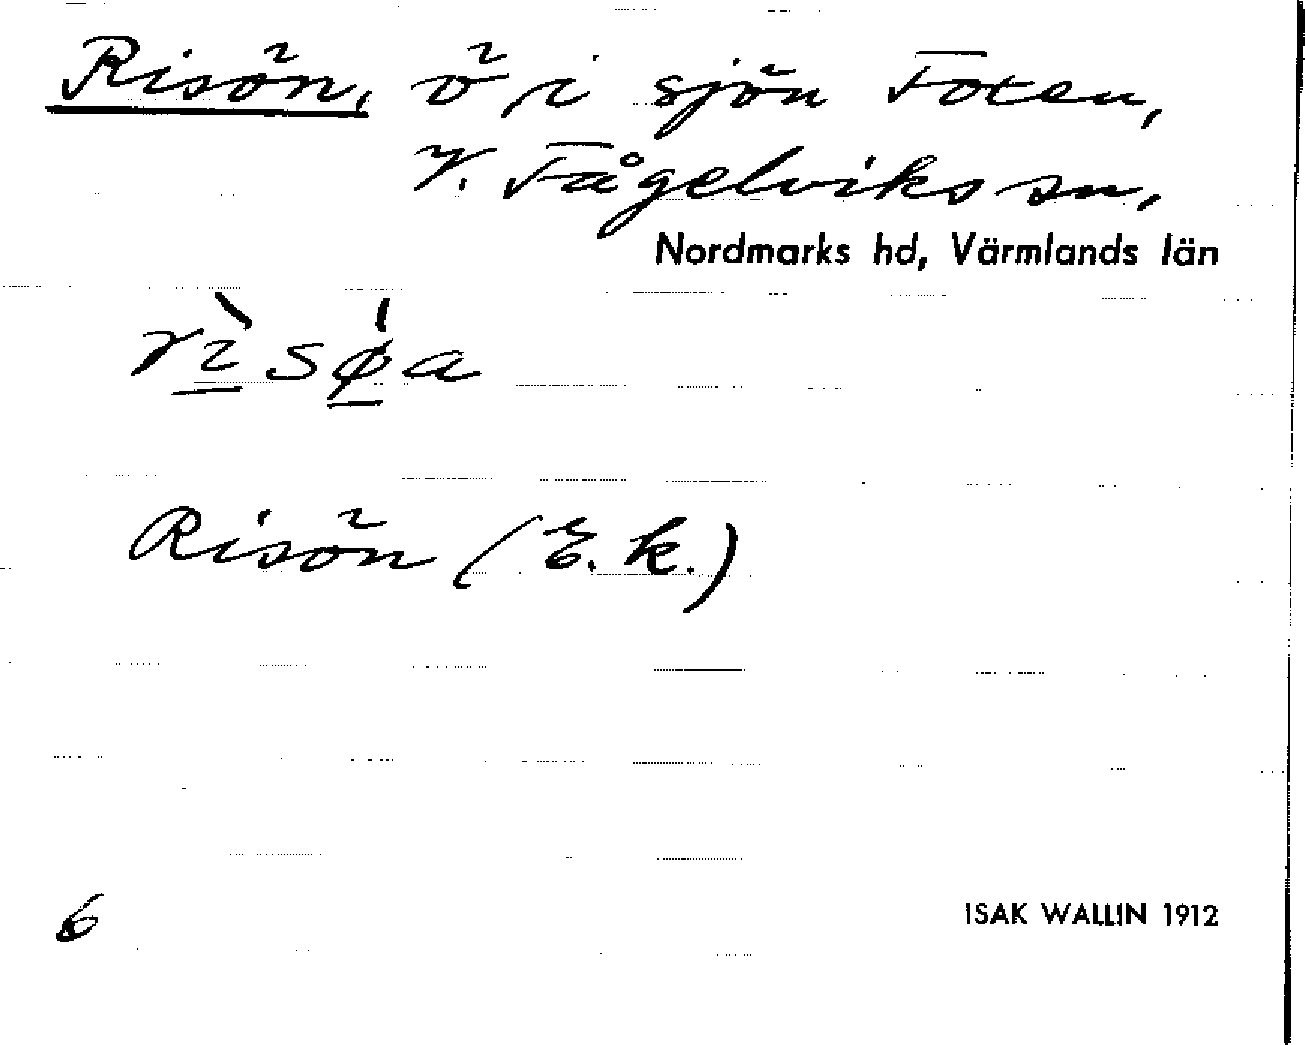 Risön, ö i sjön Foxen,
V. Fågelviks sn,
Nordmarks hd, Värmlands län
rìsø̀a
Risön (E.k.)
6
ISAK WALLIN 1912